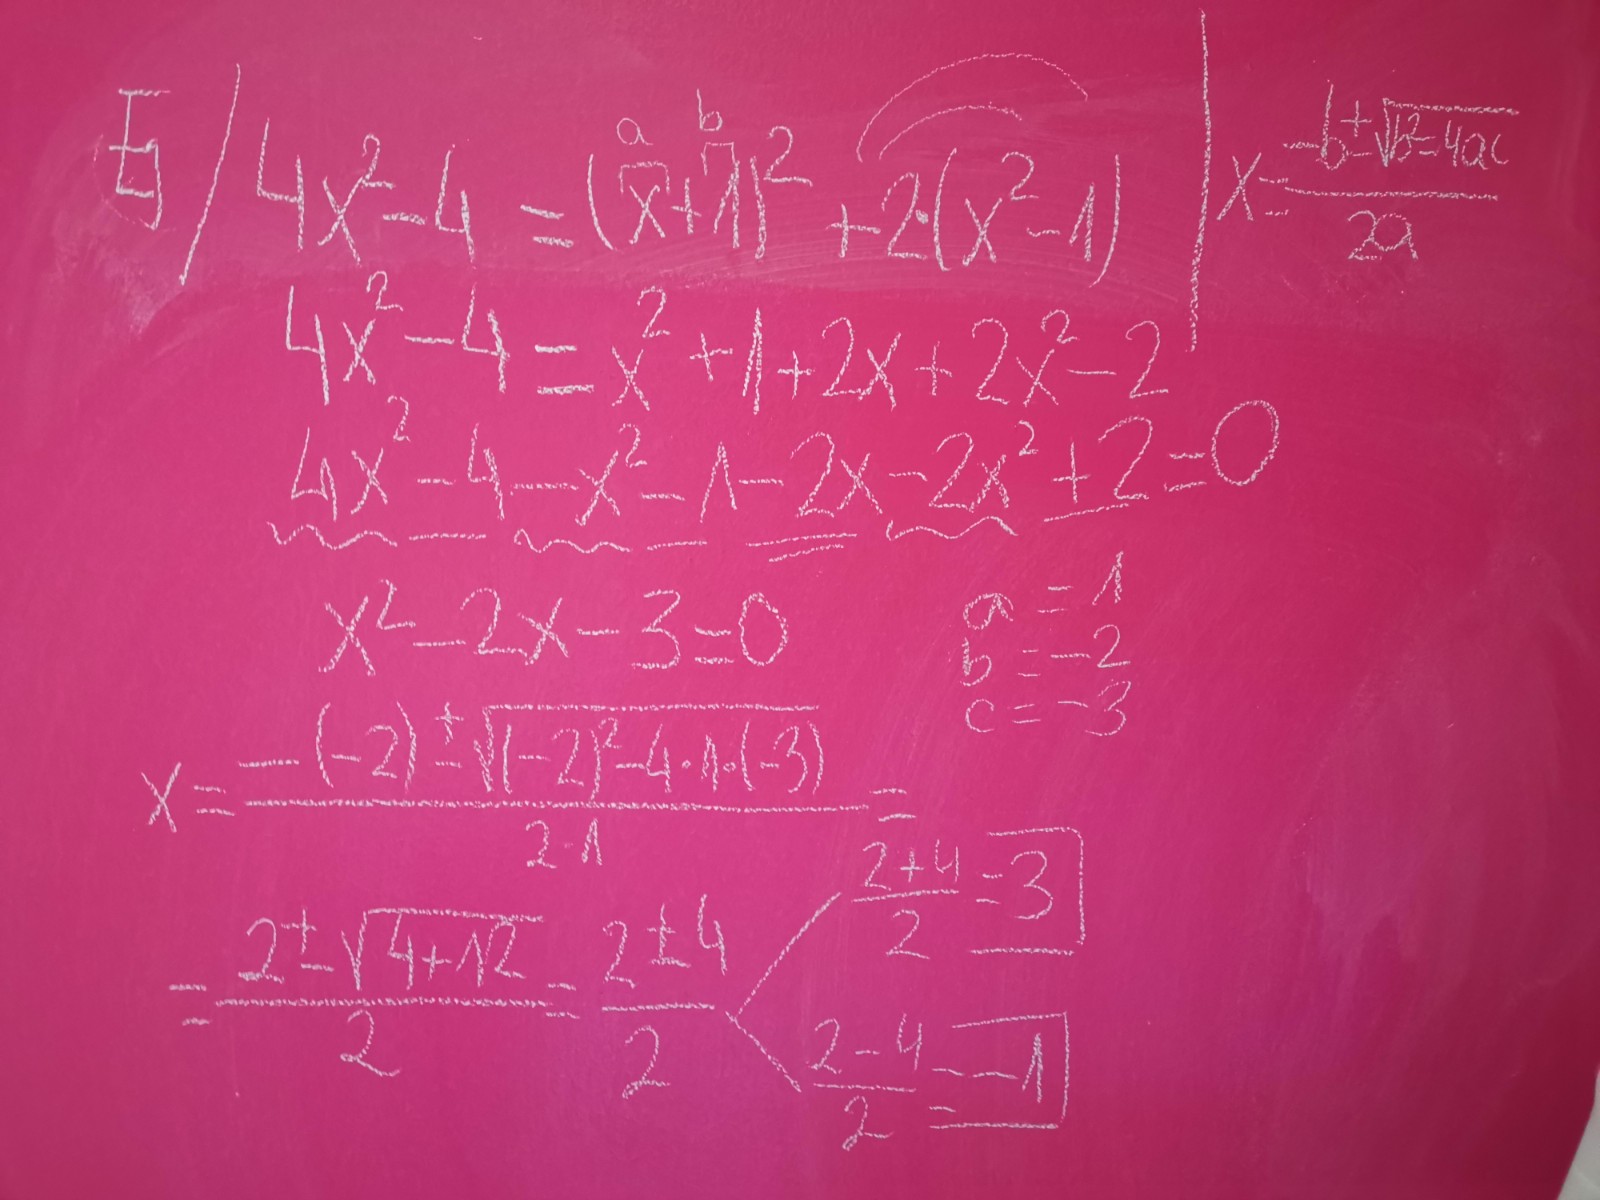 5/ 4x² - 4 = (x + 1)² + 2·(x² - 1)
a b
x = (-b ± √(b² - 4ac)) / 2a
4x² - 4 = x² + 1 + 2x + 2x² - 2
4x² - 4 - x² - 1 - 2x - 2x² + 2 = 0
x² - 2x - 3 = 0
a = 1
b = -2
c = -3
x = (-(-2) ± √((-2)² - 4·1·(-3))) / 2·1 =
= (2 ± √(4 + 12)) / 2 = (2 ± 4) / 2
(2 + 4) / 2 = 3
(2 - 4) / 2 = -1